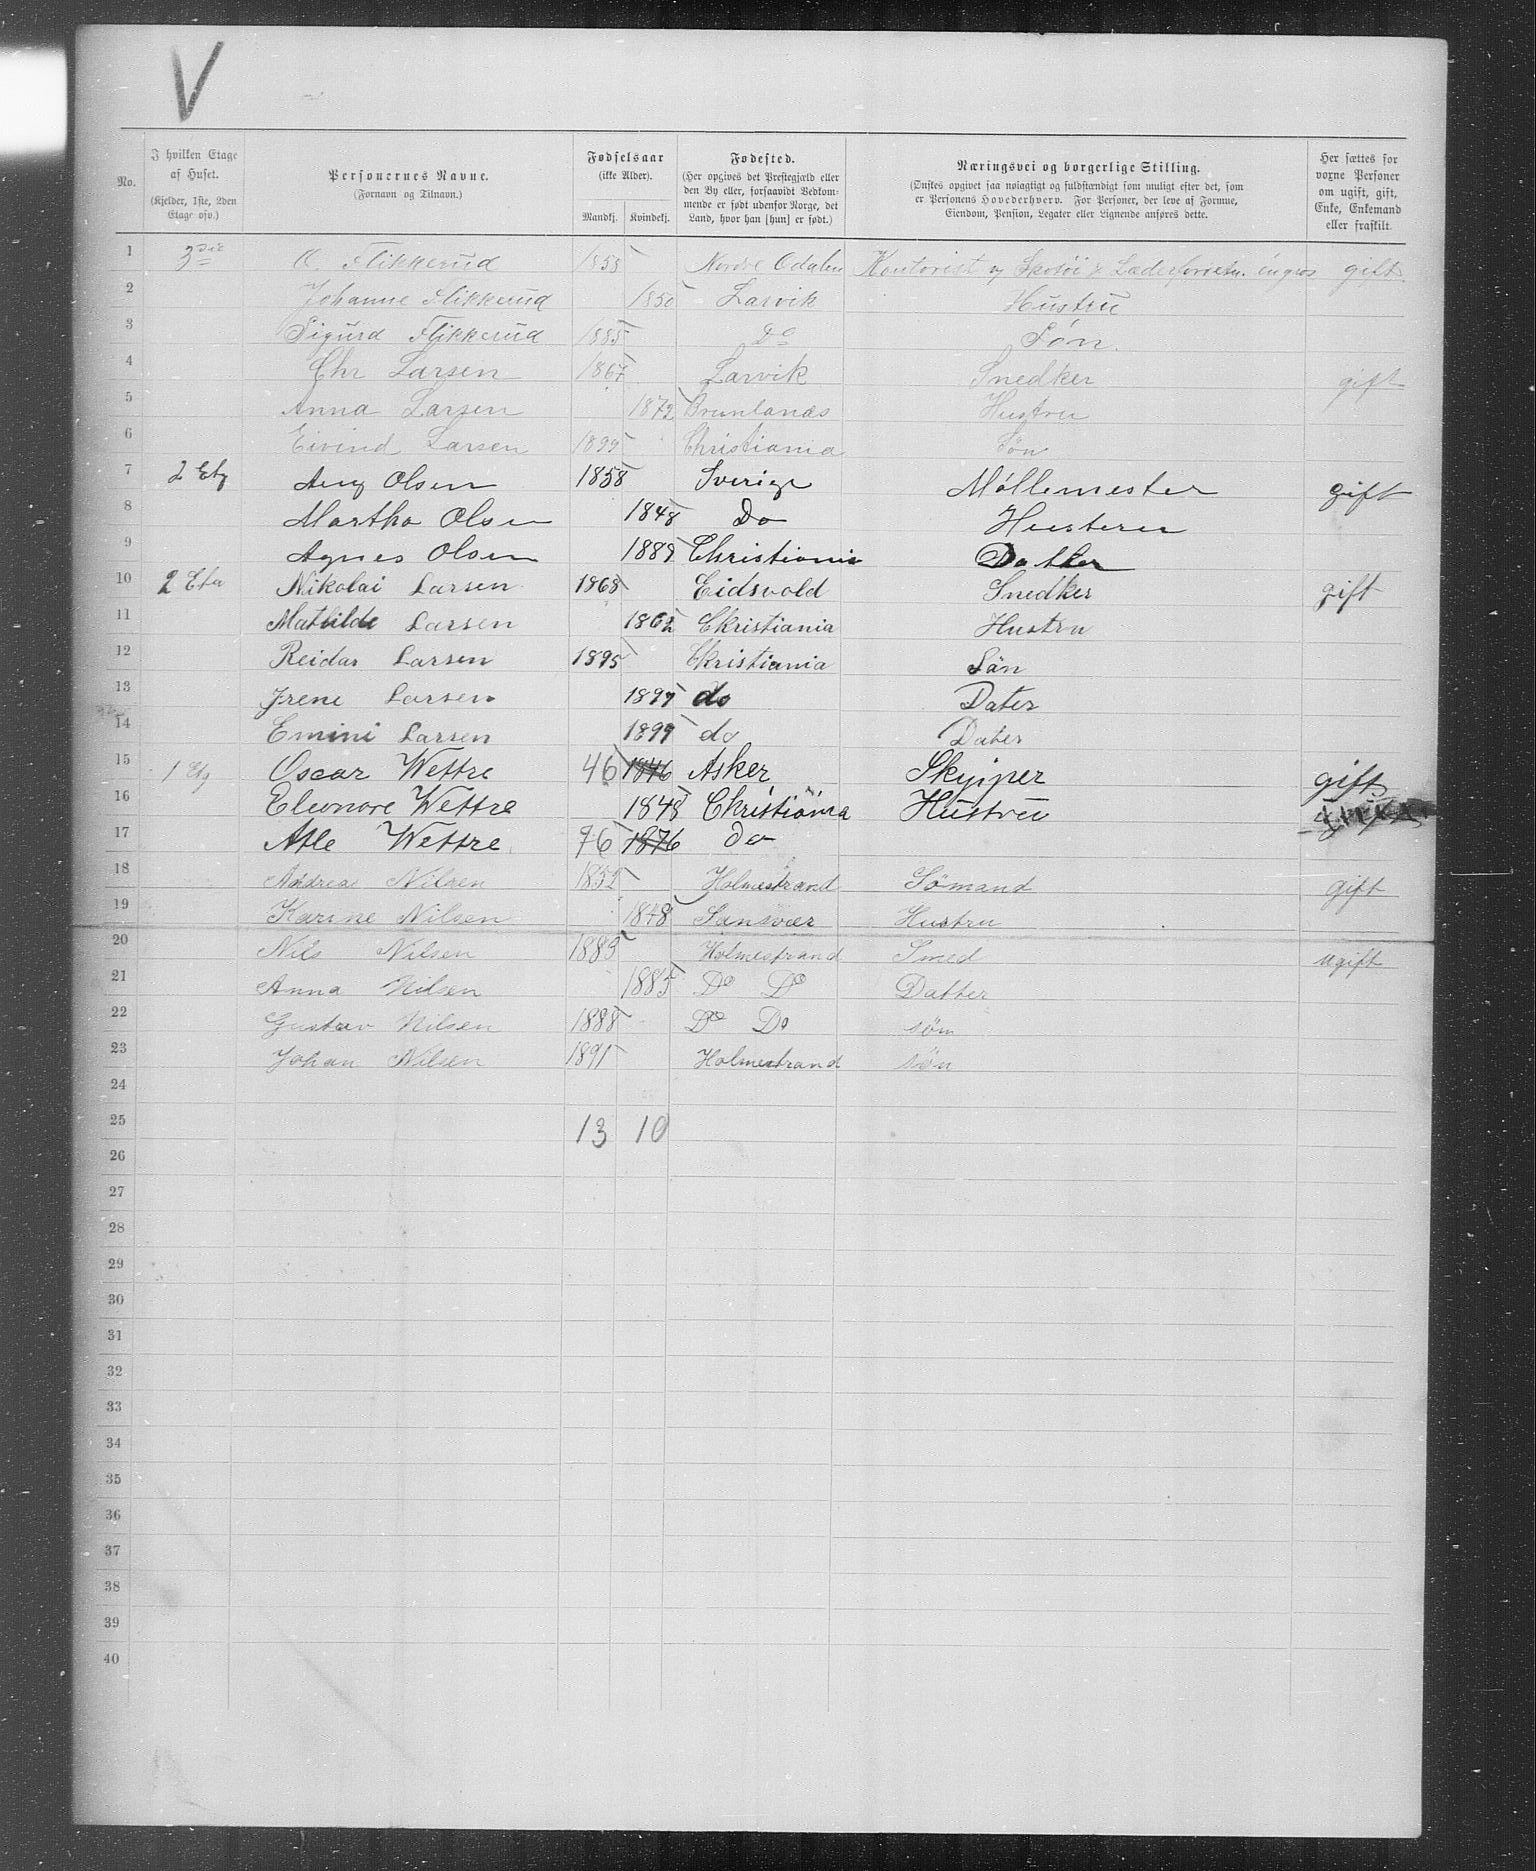 V
No.
I hvilken Etage af Huset. (Kjelder, 1ste, 2den Etage osv.)
Personernes Navne. (Fornavn og Tilnavn.)
Fødselsaar (ikke Alder). Mandkj. Kvindekj.
Fødested. (Her opgives det Prestegjæld eller den By eller, forsaavidt Vedkommende er født udenfor Norge, det Land, hvor han [hun] er født.)
Næringsvei og borgerlige Stilling. (Ønskes opgivet saa nøiagtigt og fuldstændigt som muligt efter det, som er Personens Hovederhverv. For Personer, der leve af Formue, Eiendom, Pension, Legater eller Lignende anføres dette.)
Her sættes for voxne Personer om ugift, gift, Enke, Enkemand eller fraskilt.
1 3die O. Flikkerud 1855 Nordre Odalen Kontorist og Skotöi & Læderforretn. engros gift.
2 Johanne Flikkerud 1850 Larvik Hustru
3 Sigurd Flikkerud 1885 Do Søn.
4 Chr Larsen 1867 Larvik Snedker gift
5 Anna Larsen 1872 Brunlanæs Hustru
6 Eivind Larsen 1899 Christiania Søn
7 2 Etg Aug Olsen 1858 Sverige Møllemester gift
8 Martha Olsen 1848 Do Husteru
9 Agnes Olsen 1889 Christiania Datter
10 2 Eta Nikolai Larsen 1868 Eidsvold Snedker gift
11 Mathilde Larsen 1862 Christiania Hustru
12 Reidar Larsen 1895 Christiania Sän
13 Irene Larsen 1897 do Dater
14 Emini Larsen 1899 do Dater
15 1 Etg Oscar Wettre 46 1846 Asker Skipper gift
16 Eleonore Wettre 1848 Christiania Hustru
17 Atle Wettre 76 1876 do
18 Andrea Nilsen 1852 Holmestrand Sömand gift
19 Karine Nilsen 1848 Sansvær Hustru
20 Nils Nilsen 1883 Holmestrand Smed ugift
21 Anna Nilsen 1885 Do Do Datter
22 Gustav Nilsen 1888 Do Do søn
23 Johan Nilsen 1891 Holmestrand søn
24
25 13 10
26
27
28
29
30
31
32
33
34
35
36
37
38
39
40